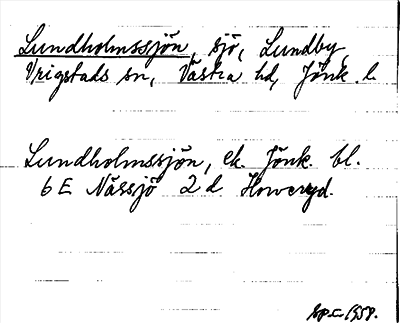 Lundholmssjön, sjö, Lundby,
Vrigstads sn, Västra hd, Jönk. l.
Lundholmssjön, ek. Jönk. bl.
6 E Nässjö 2 d Hoveryd.
1958.